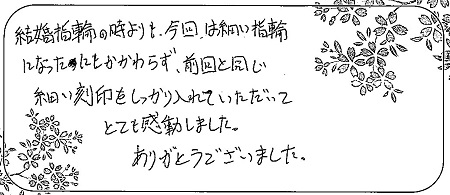 結婚指輪の時よりも、今回は細い指輪
になったにもかかわらず、前回と同じ
細い刻印をしっかり入れていただいて
とても感動しました。
ありがとうございました。